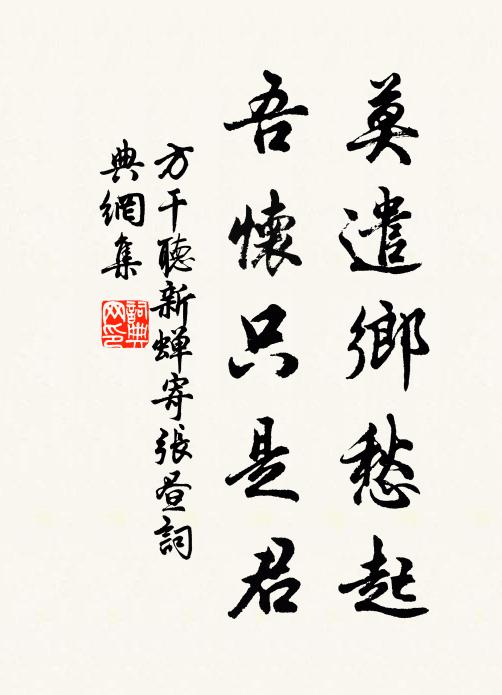 莫遣鄉愁起
吾懷只是君
方干聽新蟬寄張晝詞
典網集
詞典網印